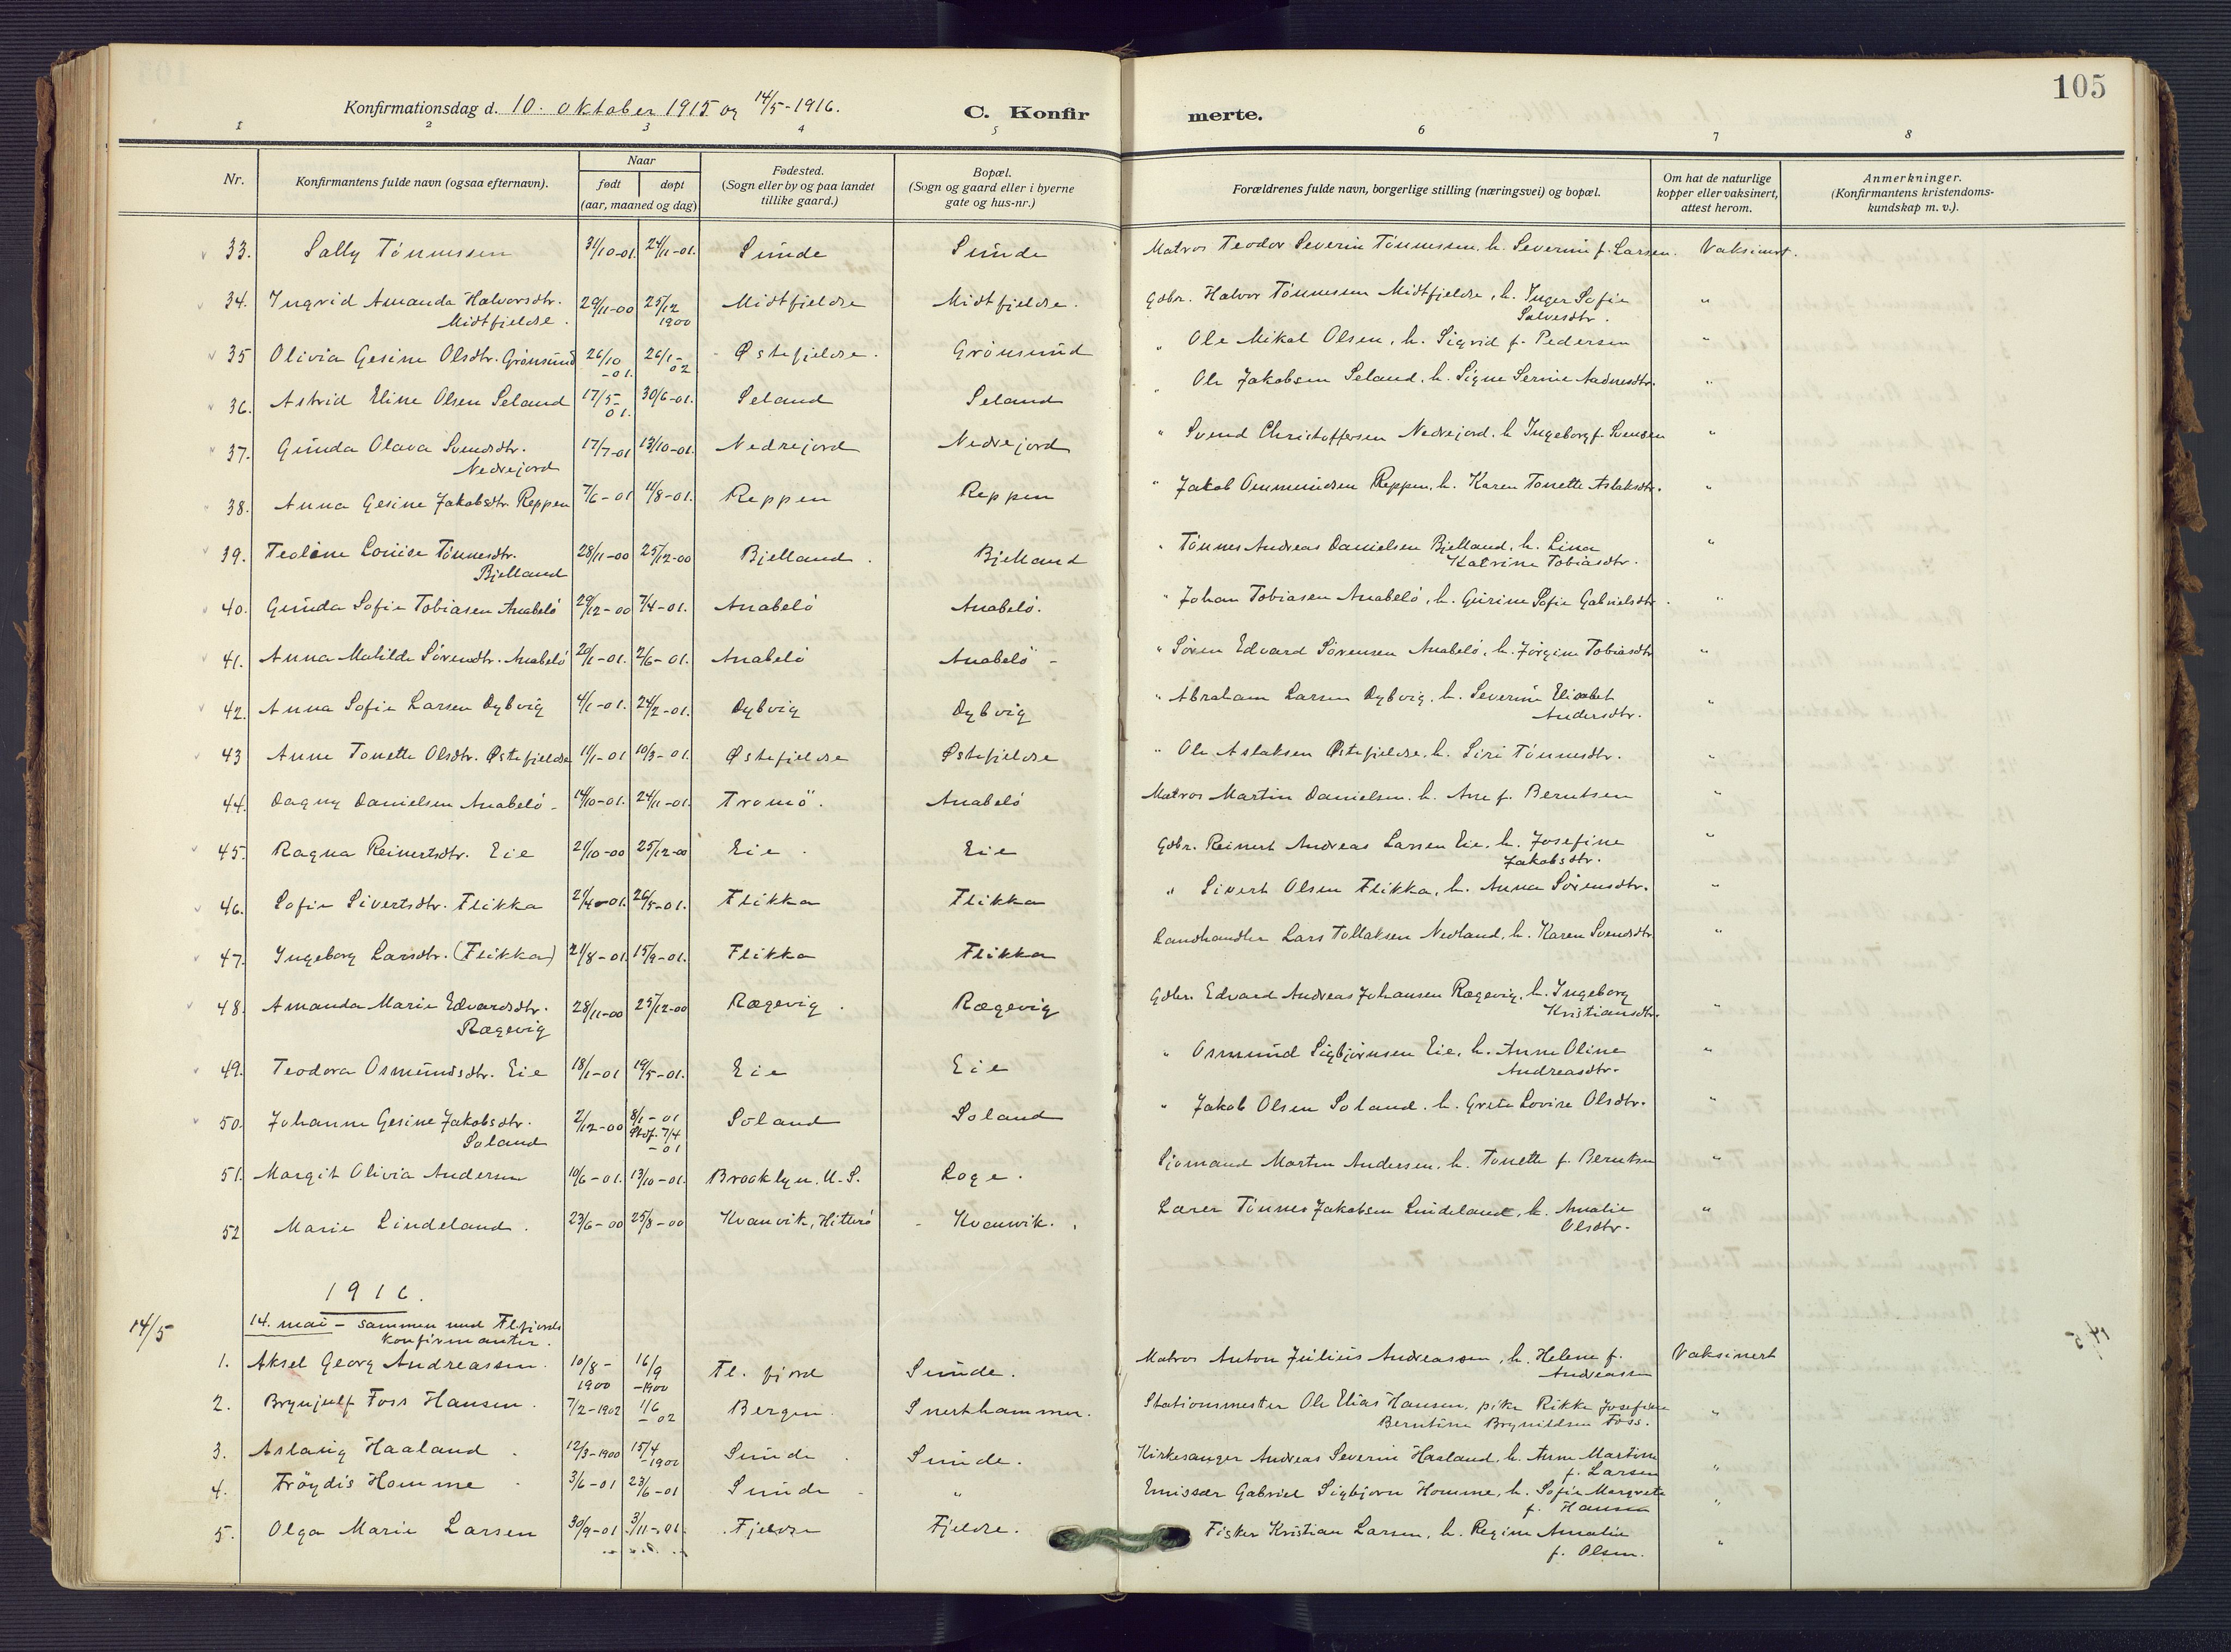 105
Konfirmationsdag d. 10. oktober 1915 og 14/5-1916. C. Konfirmerte.
1 2 3 4 5 6 7 8
Nr. Konfirmantens fulde navn (ogsaa efternavn). Naar født døpt (aar, maaned og dag) Fødested. (Sogn eller by og paa landet tillike gaard.) Bopæl. (Sogn og gaard eller i byerne gate og hus-nr.) Forældrenes fulde navn, borgerlige stilling (næringsvei) og bopæl. Om hat de naturlige kopper eller vaksinert, attest herom. Anmerkninger. (Konfirmantens kristendomskundskap m. v.).
33. Sally Tönnessen 31/10-01. 24/11-01. Sunde Sunde Matros Teodor Severin Tönnessen, h. Severine f. Larsen. Vaksinert.
34. Ingrid Amanda Halvorsdtr. Midtfjeldse. 29/11-00 25/12 1900 Midtfjeldse Midtfjeldse. Gdbr. Halvor Tönnessen Midtfjeldse, h. Inger Sofie Salvesdtr. "
35 Olivia Gesine Olsdtr. Grönsund 26/10-01. 26/1-02 Østefjeldse. Grönsund " Ole Mikal Olsen, h. Sigrid f. Pedersen "
36. Astrid Eline Olsen Seland 17/5-01. 30/6-01. Seland Seland " Ole Jakobsen Seland, h. Signe Serine Aadnesdtr. "
37. Gunda Olava Svendsdtr. Nedrejord 17/7-01 13/10-01. Nedrejord Nedrejord " Svend Christoffersen Nedrejord, h. Ingeborg f. Svensen "
38. Anna Gesine Jakobsdtr. Reppen 7/6-01 11/8-01. Reppen Reppen " Jakob Ommundsen Reppen, h. Karen Tonette Aslaksdtr. "
39. Teoline Louise Tönnesdtr. Bjelland 28/11-00 25/12-00 Bjelland. Bjelland " Tönnes Andreas Danielsen Bjelland, h. Lina Katrine Tobiasdtr. "
40. Gunda Sofie Tobiasen Anabelö 29/12-00 7/4-01. Anabelö Anabelö. " Johan Tobiasen Anabelö, h. Gurine Sofie Gabrielsdtr. "
41. Anna Matilde Sörensdtr. Anabelö 20/1-01. 2/6-01. Anabelö Anabelö - " Sören Edvard Sörensen Anabelö, h. Jörgine Tobiasdtr "
42. Anna Sofie Larsen Dybvig 4/1-01. 24/2-01. Dybvig Dybvig " Abraham Larsen Dybvig, h. Severine Elisabet Andersdtr. "
43 Anne Tonette Olsdtr. Østefjeldse 11/1-01 10/3-01. Østefjeldse Østefjeldse " Ole Aslaksen Østefjeldse, h. Siri Tönnesdtr. "
44. Dagny Danielsen Anabelö - 14/10-01. 24/11-01. Tromö. Anabelö Matros Martin Danielsen, h. Ane f. Berntsen "
45. Ragna Reinertsdtr. Eie 21/10-00 25/12-00 Eie. Eie Gdbr. Reinert Andreas Larsen Eie, h. Josefine Jakobsdtr. "
46. Sofie Sivertsdtr. Flikka 21/4-01. 26/5-01. Flikka Flikka " Sivert Olsen Flikka, h. Anna Sörensdtr. "
47. Ingeborg Larsdtr. (Flikka) 21/8-01. 15/9-01. Flikka Flikka Landhandler Lars Tollaksen Nedland, h. Karen Svendsdtr "
48. Amanda Marie Edvardsdtr. Rægevig 28/11-00 25/12-00 Rægevig. Rægevig Gdbr. Edvard Andreas Johansen Rægevig, h. Ingeborg Kristiansdtr. "
49. Teodora Osmundsdtr. Eie 18/1-01 19/5-01. Eie Eie " Osmund Sigbjörnsen Eie, h. Anne Oline Andreasdtr. "
50. Johanne Gesine Jakobsdtr. Soland 2/12-00 8/1-01 Stdf. 7/4-01 Soland Soland " Jakob Olsen Soland, h. Grete Lovise Olsdtr. "
51. Margit Olivia Andersen 10/6-01. 13/10-01. Brooklyn. U.S. Loge. Sjömand Martin Andersen, h. Tonette f. Berntsen "
52 Marie Lindeland. 23/6-00 25/8-00 Kvanvik, Hitterö Kvanvik. Lærer Tönnes Jakobsen Lindeland, h. Amalie Olsdtr. "
1916.
14/5 14. mai - sammen med Flefjords konfirmanter.
1. Aksel Georg Andreassen. 10/8-1900 16/9-1900 Fl. fjord Sunde. Matros Anton Julius Andreassen, h. Helene f. Andreassen Vaksinert
2. Brynjulf Foss Hansen. 7/2-1902 1/6-02 Bergen. Snerthammer. Stationsmester Ole Elias Hansen, pike Rikke Josefine Berntine Brynildsen Foss. "
3. Aslaug Haaland. 12/3-1900 15/4-1900 Sunde. Sunde. Kirkesanger Andreas Severin Haaland, h. Anne Martine f. Larsen "
4. Fröydis Homme. 3/6-01 23/6-01 Sunde. " Emissær Gabriel Sigbjörn Homme, h. Sofie Margrete f. Hansen "
5. Olga Marie Larsen 30/9-01 3/11-01. Fjeldse Fjeldse. Fisker Kristian Larsen, h. Regine Amalie f. Olsen. "